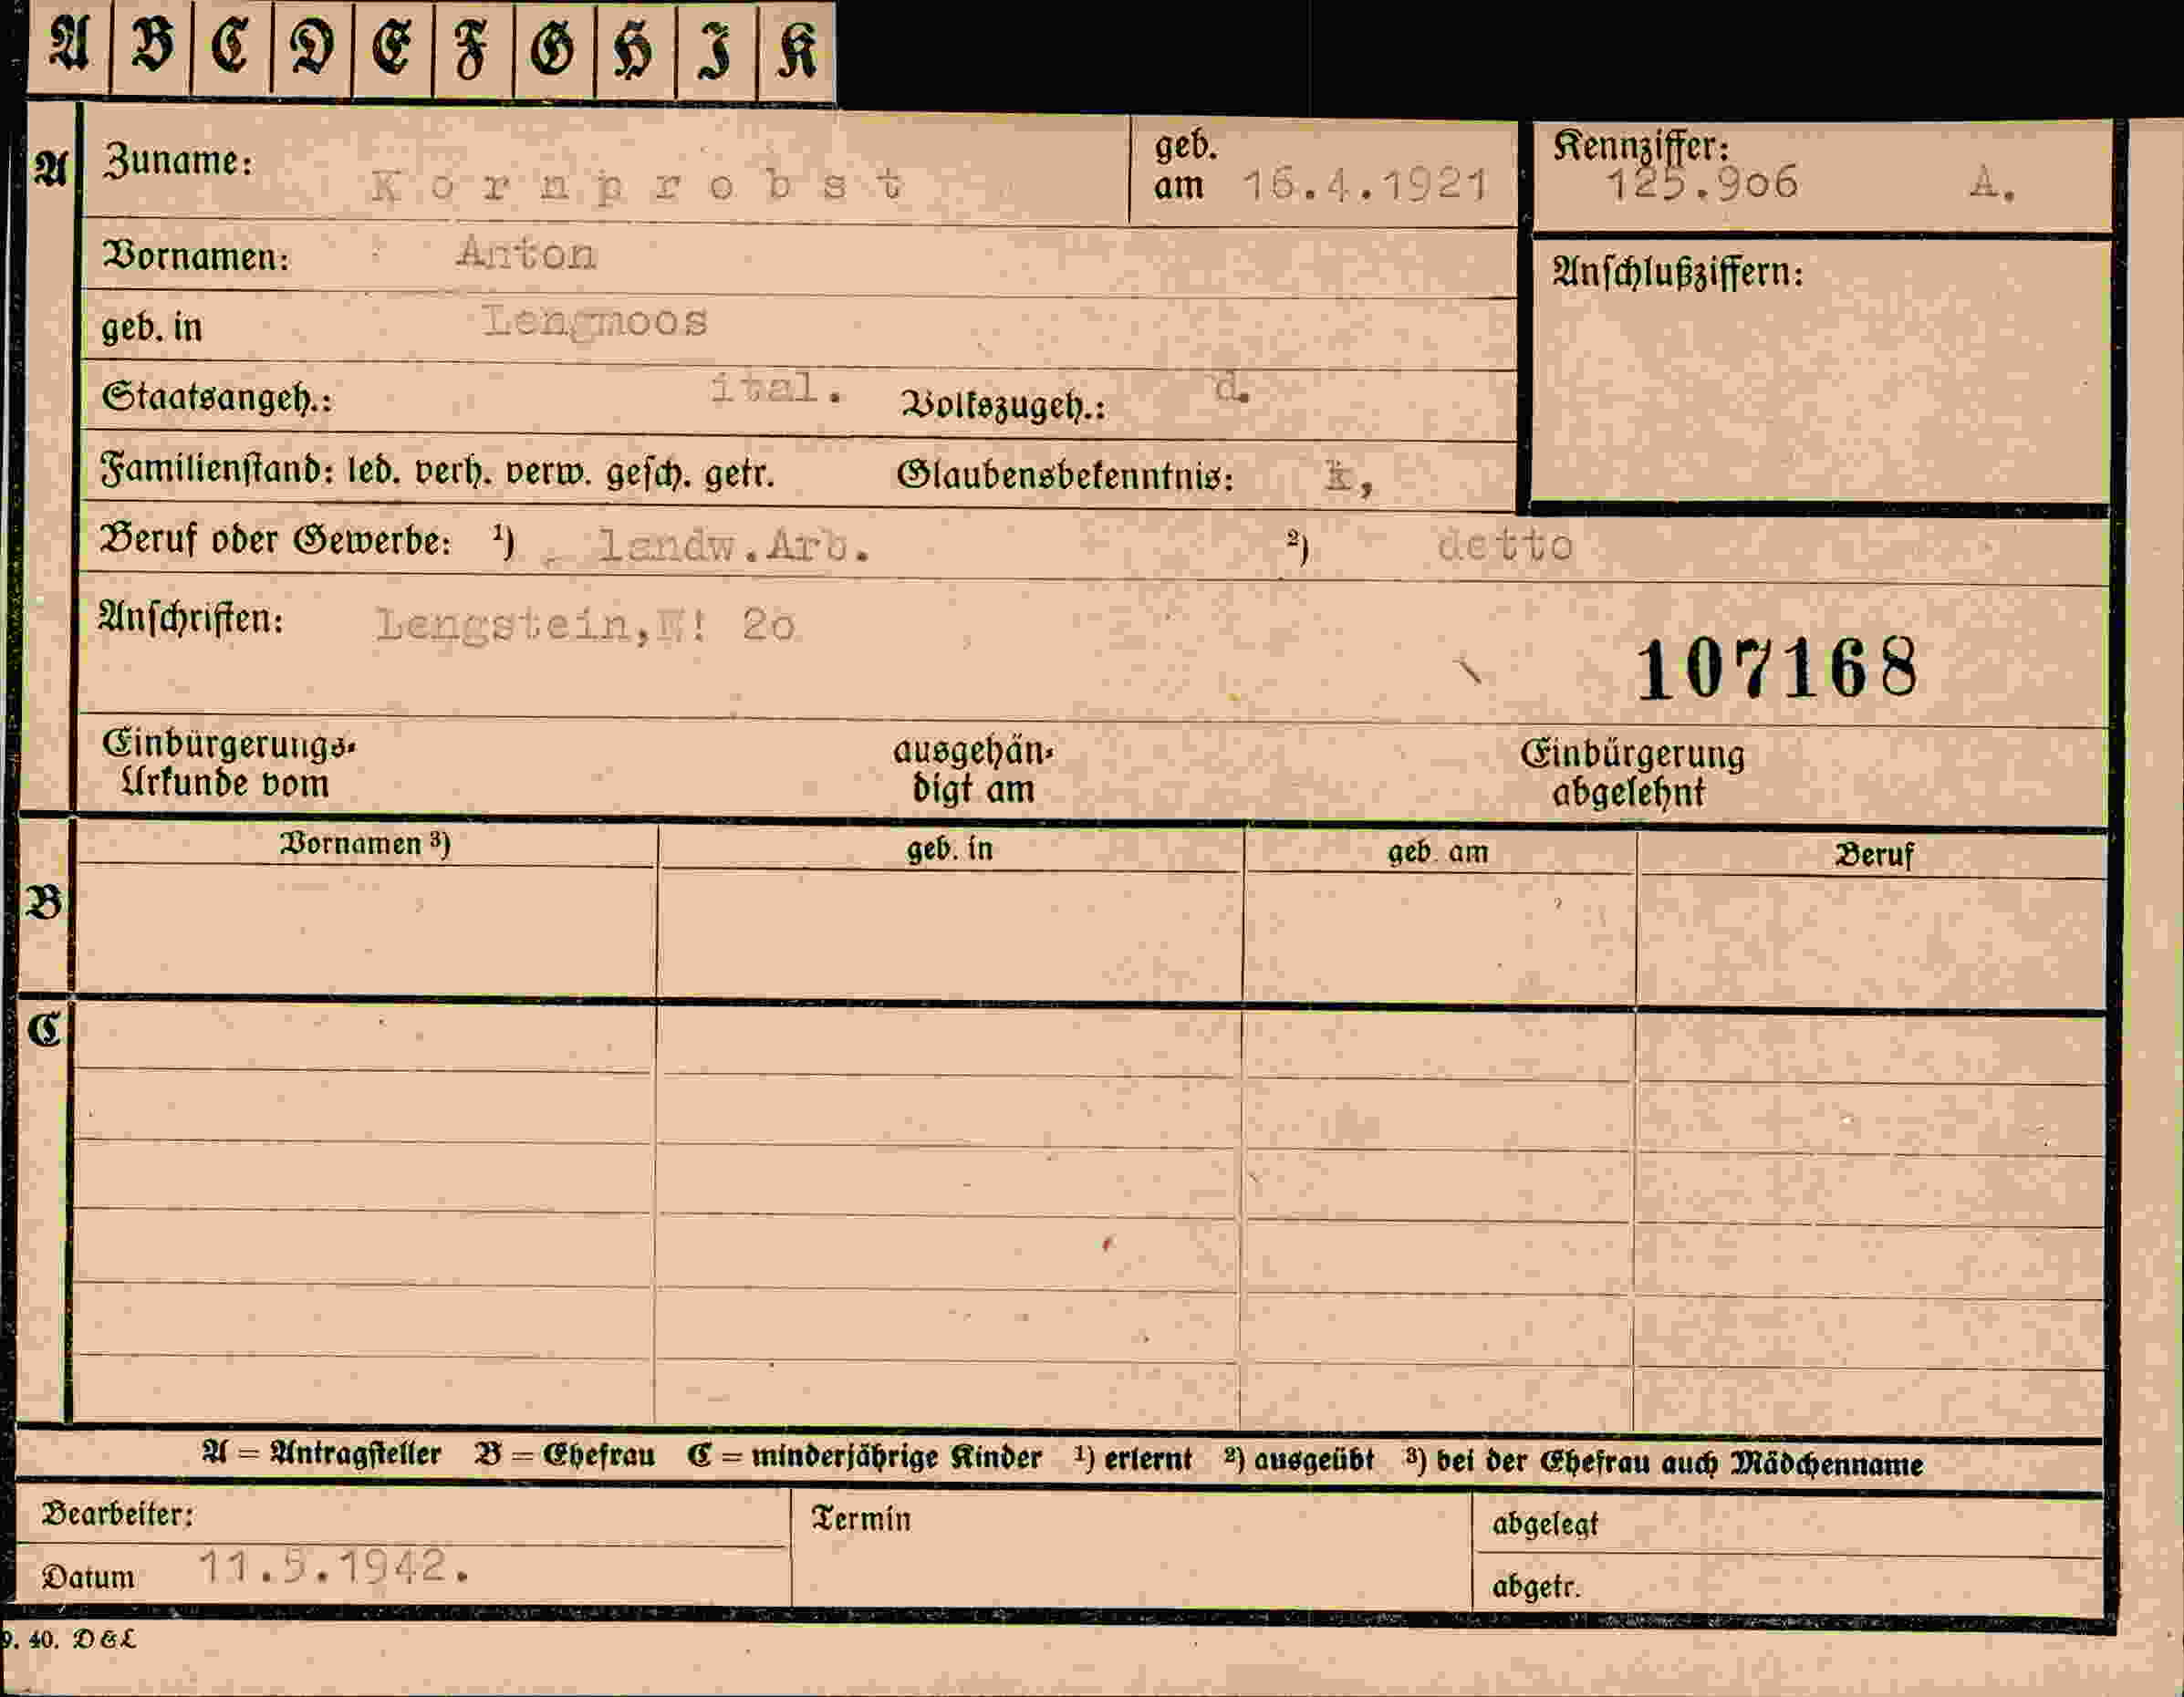 A B C D E F G H I K
A Zuname: Kornprobst geb. am 16.4.1921 Kennziffer: 125.9o6 A.
Vornamen: Anton
Anschlußziffern:
geb. in Lengmoos
Staatsangeh.: ital. Volkszugeh.: d.
Familienstand: led. verh. verw. gesch. getr. Glaubensbekenntnis: k,
Beruf oder Gewerbe: ¹) landw.Arb. ²) detto
Anschriften: Lengstein, 2o
107168
Einbürgerungs-
Urkunde vom
ausgehän-
digt am
Einbürgerung
abgelehnt
Vornamen ³) geb. in geb. am Beruf
B
C
A = Antragsteller B = Ehefrau C = minderjährige Kinder ¹) erlernt ²) ausgeübt ³) bei der Ehefrau auch Mädchenname
Bearbeiter: Termin abgelegt
Datum 11.5.1942. abgetr.
9. 40. D & L